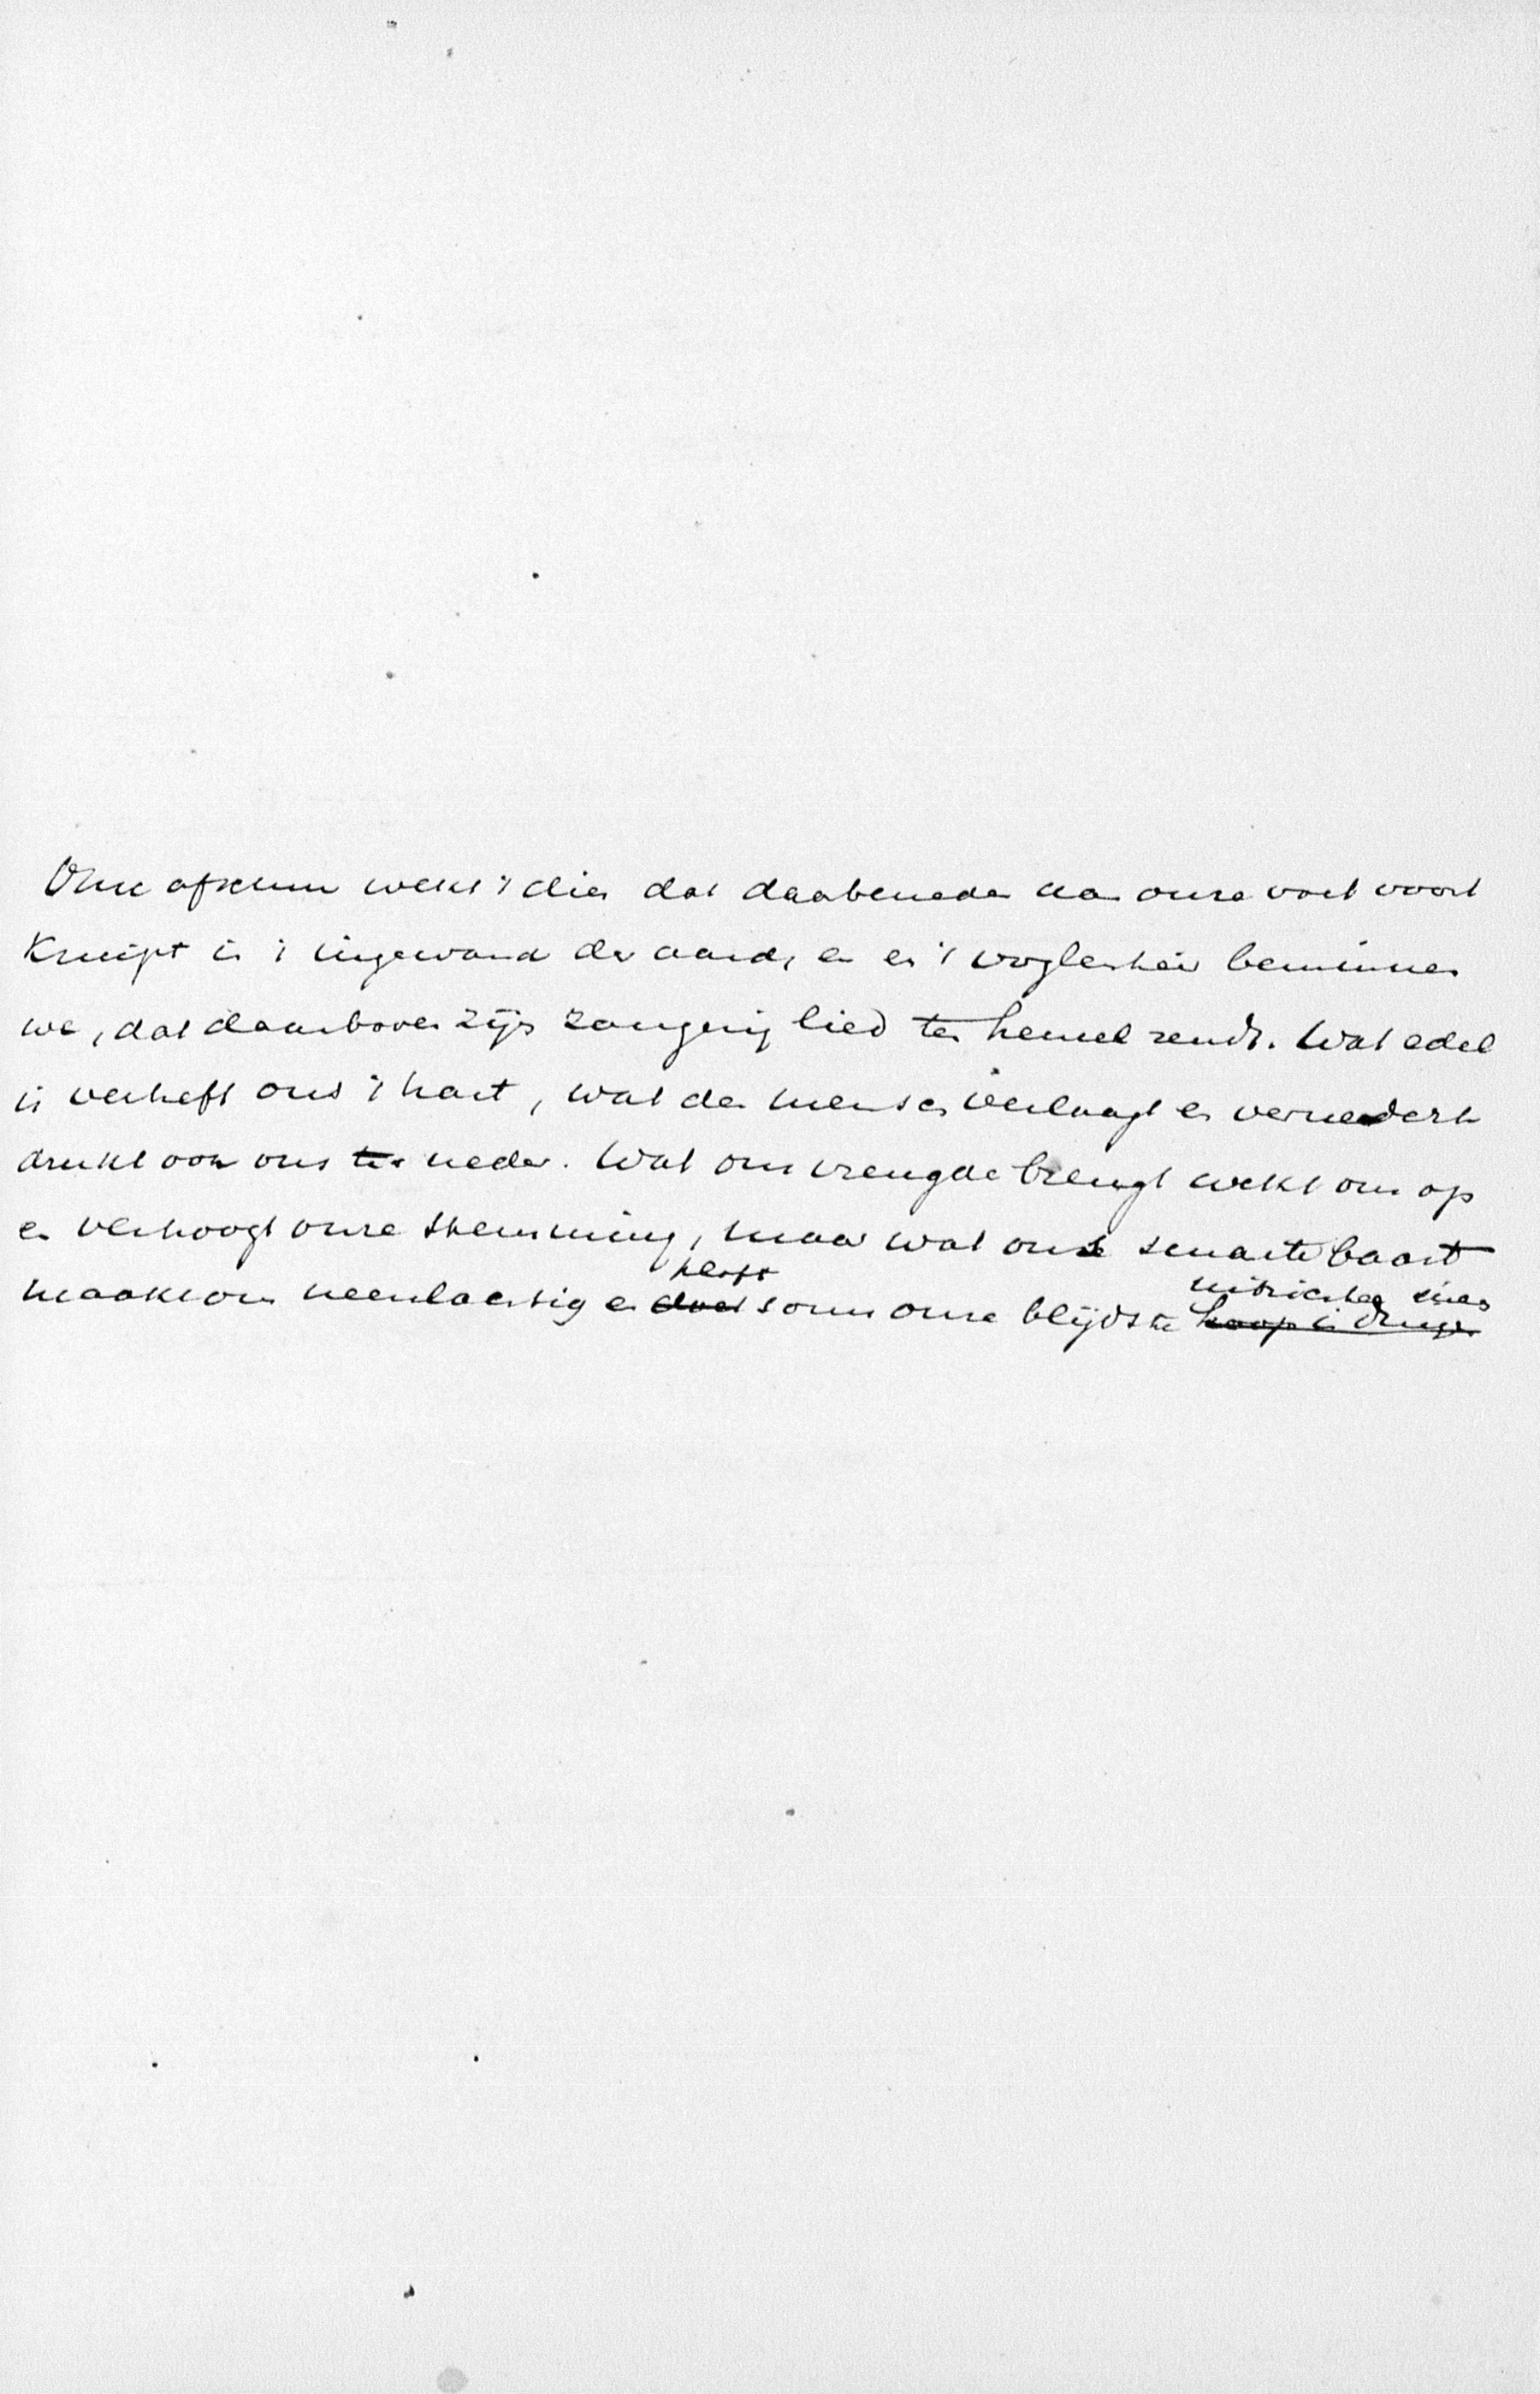 Onze afschuw wekt 't dier dat daarbeneden aan onze voet voort
kruipt in 't ingewand der aarde, en en 't voglenheir beminnen
we, dat daarboven zijn zangerig lied ten hemel zendt. Wat edel
is verheft ons 't hart, wat den mensch verlaagt en vernedert
drukt ook ons ter neder. Wat ons vreugde brengt wekt ons op
en verhoogt onze stemming, maar wat ons smarte baart
ploft
maakt ons neerslachtig en doet soms onze blijdste hoop in